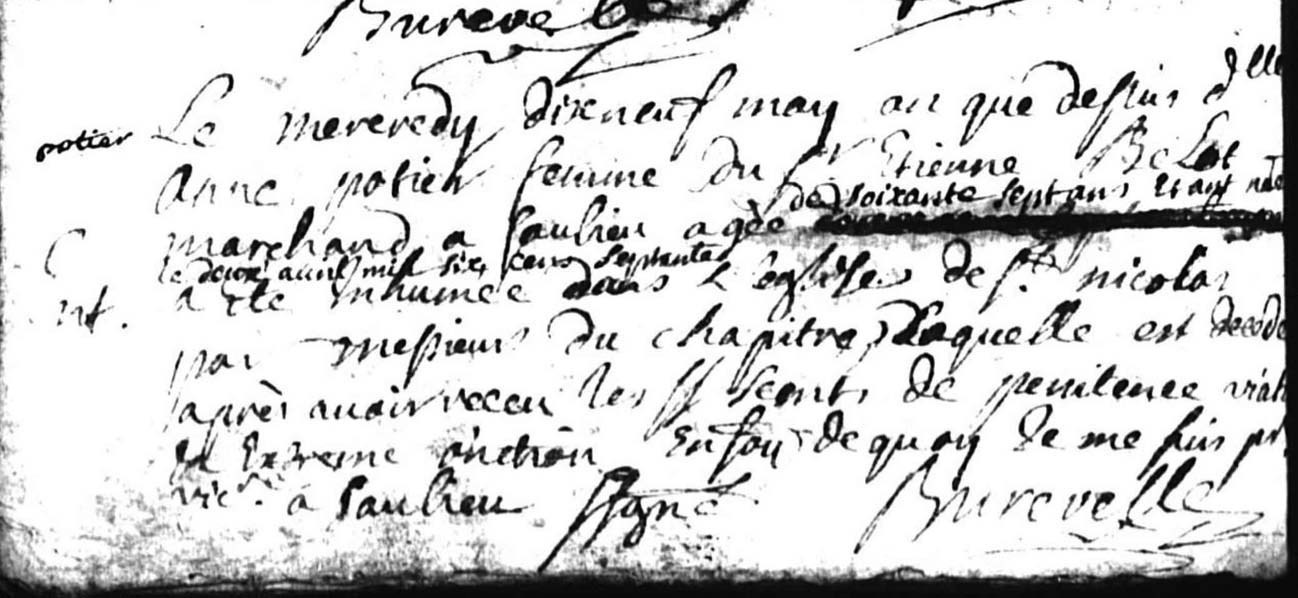 Burevelle
potier
Le mereredy dixneuf may an que dessus dlle
Anne potier femme du sr Etienne Belot
de soixante sept ans etant née
marchand a saulieu agée
le deux auril mil six cens septante
a ete inhumée dans l'église de st. nicolas
nt.
par messieurs du chapitre, laquelle est decede
après auoir receu les ss sents de penitence viat
et Extreme onction En foy de quoy Je me suis
vicr. a saulieu signé Burevelle